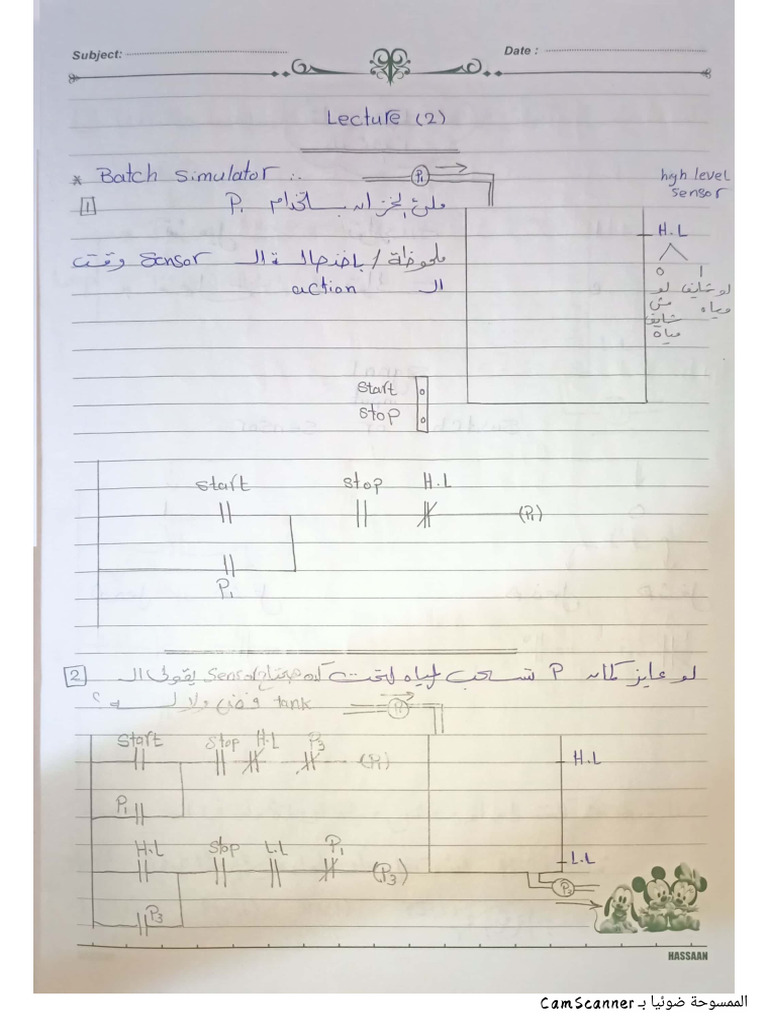 Subject:
Date :
Lecture (2)
* Batch Simulator :.
P1
high level
sensor
1 ملئ الخزان باستخدام P1
H.L
ملحوظة / باخد حالة ال sensor وقت
ال action
1 0
لو شايف مياه
لو مش شايف مياه
start
stop
start stop H.L
(P1)
P1
2 لو عايز كمان P تسحب المياه لتحت كده هحتاج sensor يقولى ال
tank فضى ولا لسه ؟
P1
Start Stop H.L P3
(P1)
P1
H.L
H.L Stop L.L P1
(P3)
L.L
P3
P3
HASSAAN
الممسوحة ضوئيا بـ CamScanner